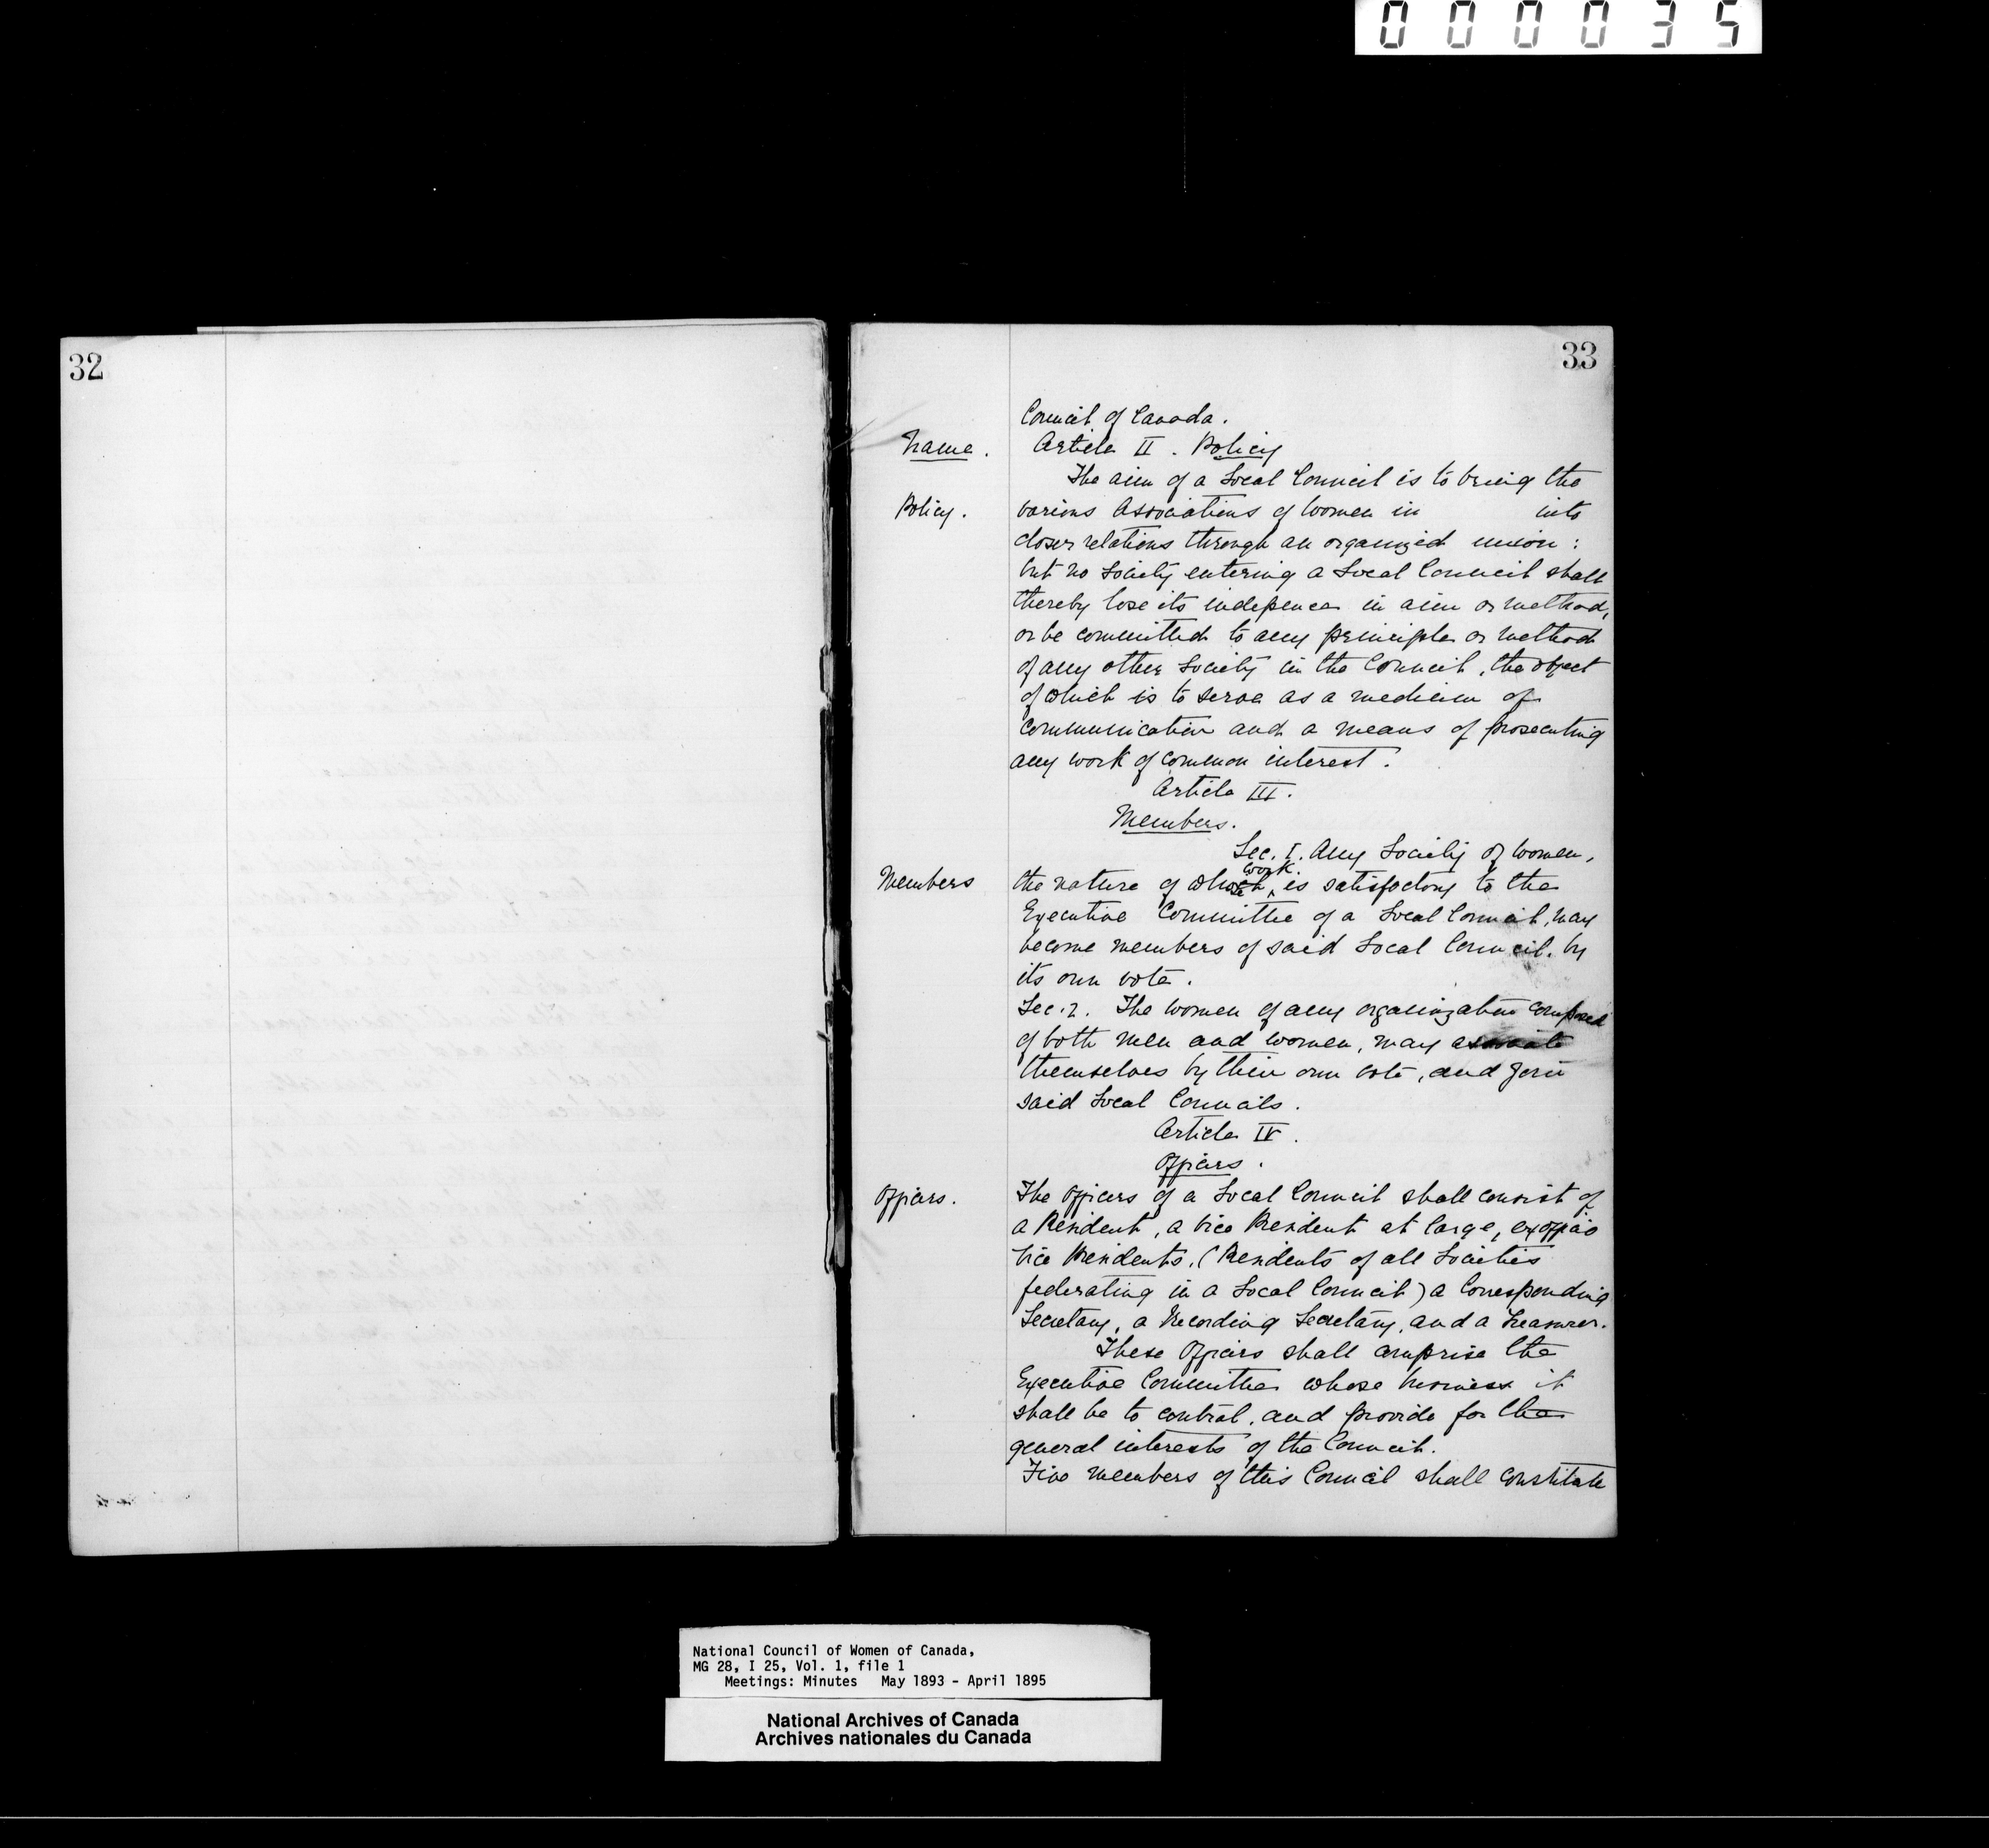 000035
32
33
Council of Canada.
Name. Article II. Policy
The aim of a Local Council is to bring the
Policy. various Associations of Women in into
closer relations through an organized union:
but no Society entering a Local Council shall
thereby lose its indepence in aim or method,
or be committed to any principle or method
of any other Society in the Council, the object
of which is to serve as a medium of
Communication and a means of prosecuting
any work of common interest.
Article III.
Members.
Sec. I. Any Society of Women,
work
Members the nature of whose is satisfactory to the
Executive Committee of a Local Council, may
become members of said Local Council by
its own vote.
Sec. 2. The women of any organization composed
of both men and women, may associate
themselves by their own vote, and join
said Local Councils.
Article IV.
Officers.
Officers. The Officers of a Local Council shall consist of
a President, a Vice President at large, ex officio
Vice Presidents, (Presidents of all Societies
federating in a Local Council) a Corresponding
Secretary, a Recording Secretary, and a Treasurer.
These Officers shall comprise the
Executive Committee whose business it
shall be to control, and provide for the
general interests of the Council.
Five members of this Council shall constitute
National Council of Women of Canada,
MG 28, I 25, Vol. 1, file 1
Meetings: Minutes May 1893 - April 1895
National Archives of Canada
Archives nationales du Canada